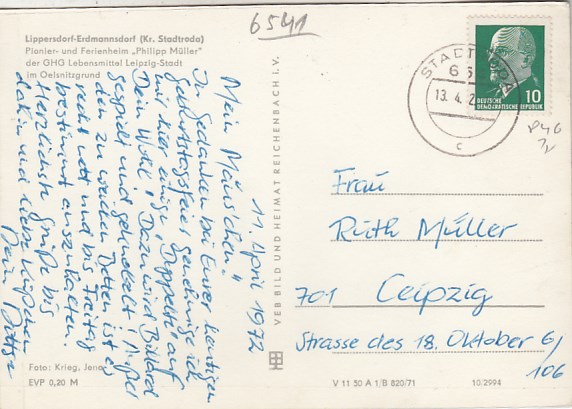 6541
Lippersdorf-Erdmannsdorf (Kr. Stadtroda)
Pionier- und Ferienheim „Philipp Müller"
der GHG Lebensmittel Leipzig-Stadt
im Oelsnitzgrund
11. April 1972
Mein Mäuschen"
In Gedanken bei Eurer heutigen
Geburtstagsfeier genehmige ich
mir hier einige „Doppelte" auf
Dein Wohl. Dazu wird Billard
gespielt und geknobelt!
den zu weichen Betten ist es
recht nett und bis Freitag
bestimmt auszuhalten.
Herzlichste Grüße bis
dahin und liebe Küßchen
Dein
Foto: Krieg, Jena
EVP 0,20 M
VEB BILD UND HEIMAT REICHENBACH i. V.
STADTRODA
13. 4. 
c
DEUTSCHE
DEMOKRATISCHE REPUBLIK
10
Frau
Ruth Müller
701 Leipzig
Strasse des 18. Oktober 6/
106
V 11 50 A 1/B 820/71
10/2994